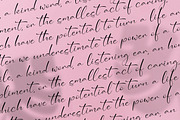 a kind word, a
ment, or the smallest act of caring,
have the potential to turn a life a
ten we underestimate the power of a to
ile, a kind word, a listening ear, an hon
pliment, or the smallest act of caring,
which have the potential to turn a life
often we underestimate the power of a